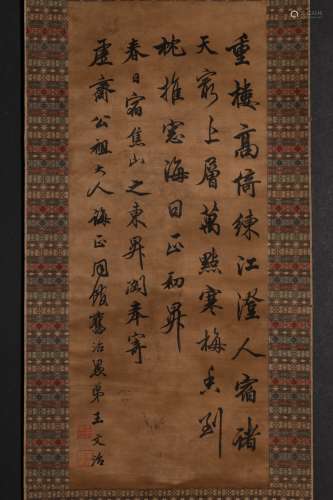 重樓高倚練江澄人宿諸
天最上層萬點寒梅香到
枕推窓海日正初昇
春日宿焦山之東昇閣奉寄
虛齋公祖大人誨正同館舊治愚弟王文治